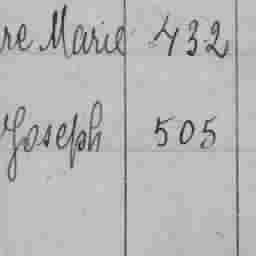 re Marie 432
Joseph 505